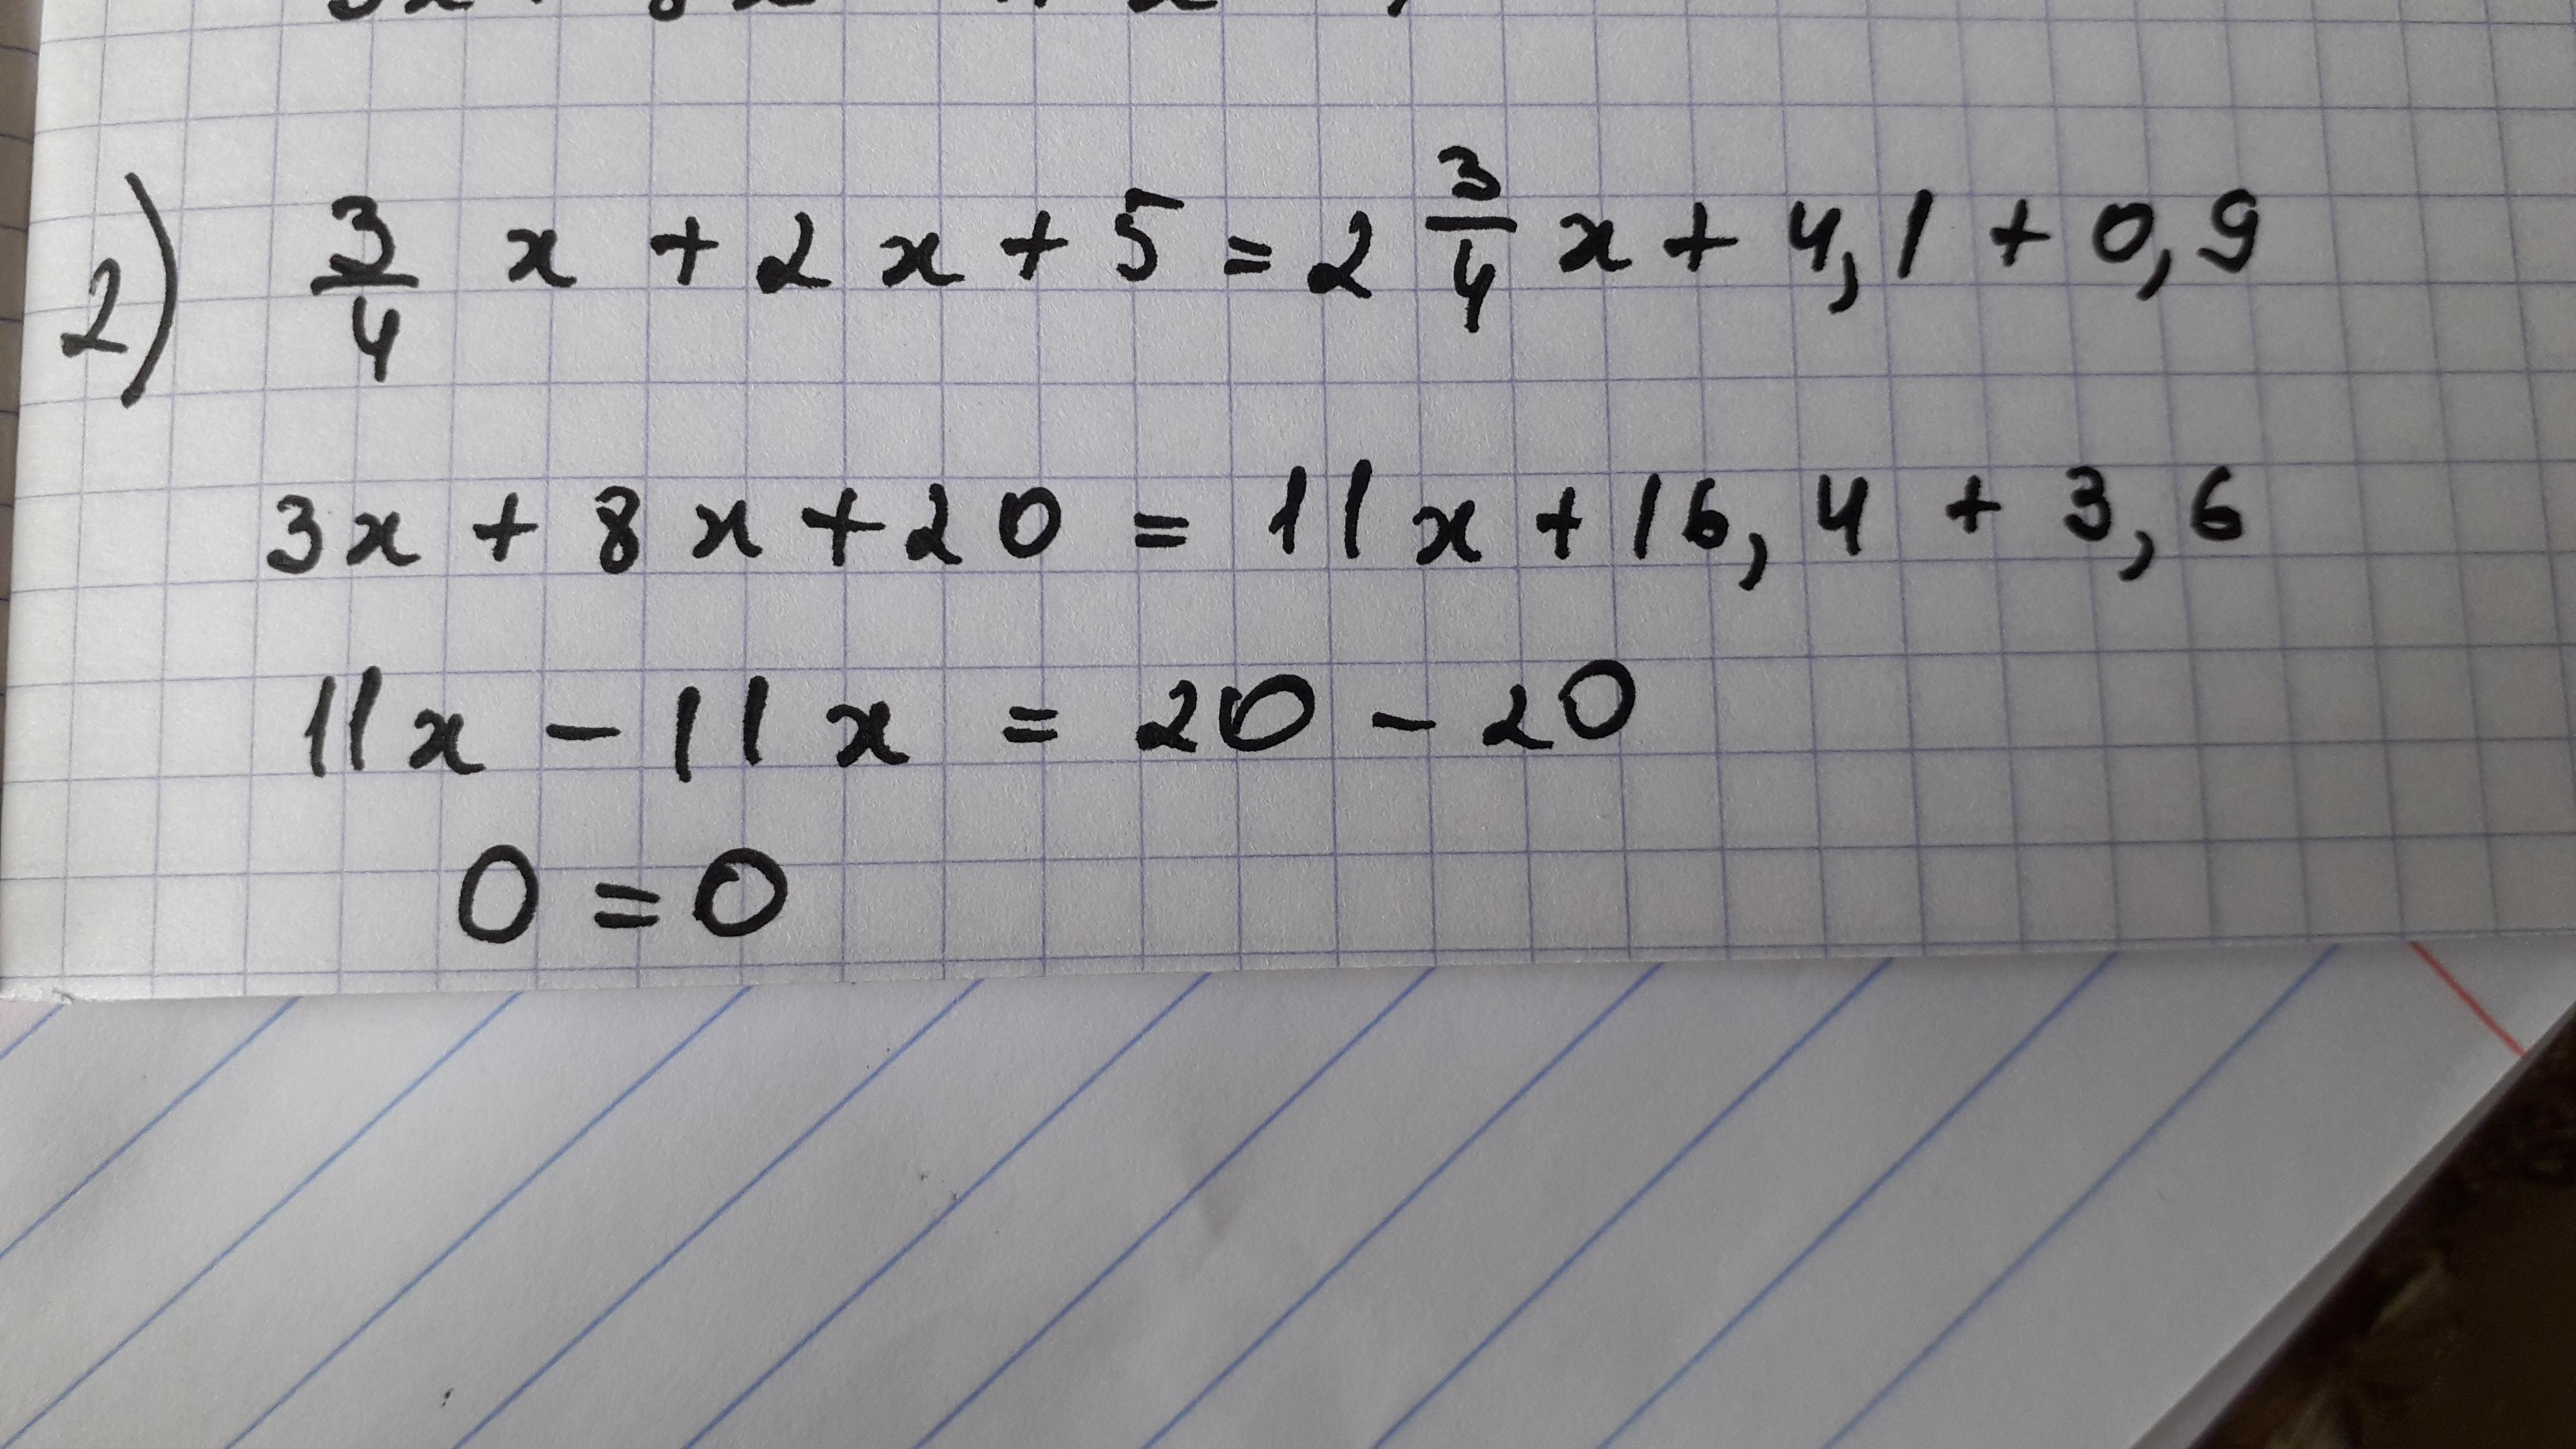 2) 3/4 x + 2x + 5 = 2 3/4 x + 4,1 + 0,9
3x + 8x + 20 = 11x + 16,4 + 3,6
11x - 11x = 20 - 20
0 = 0